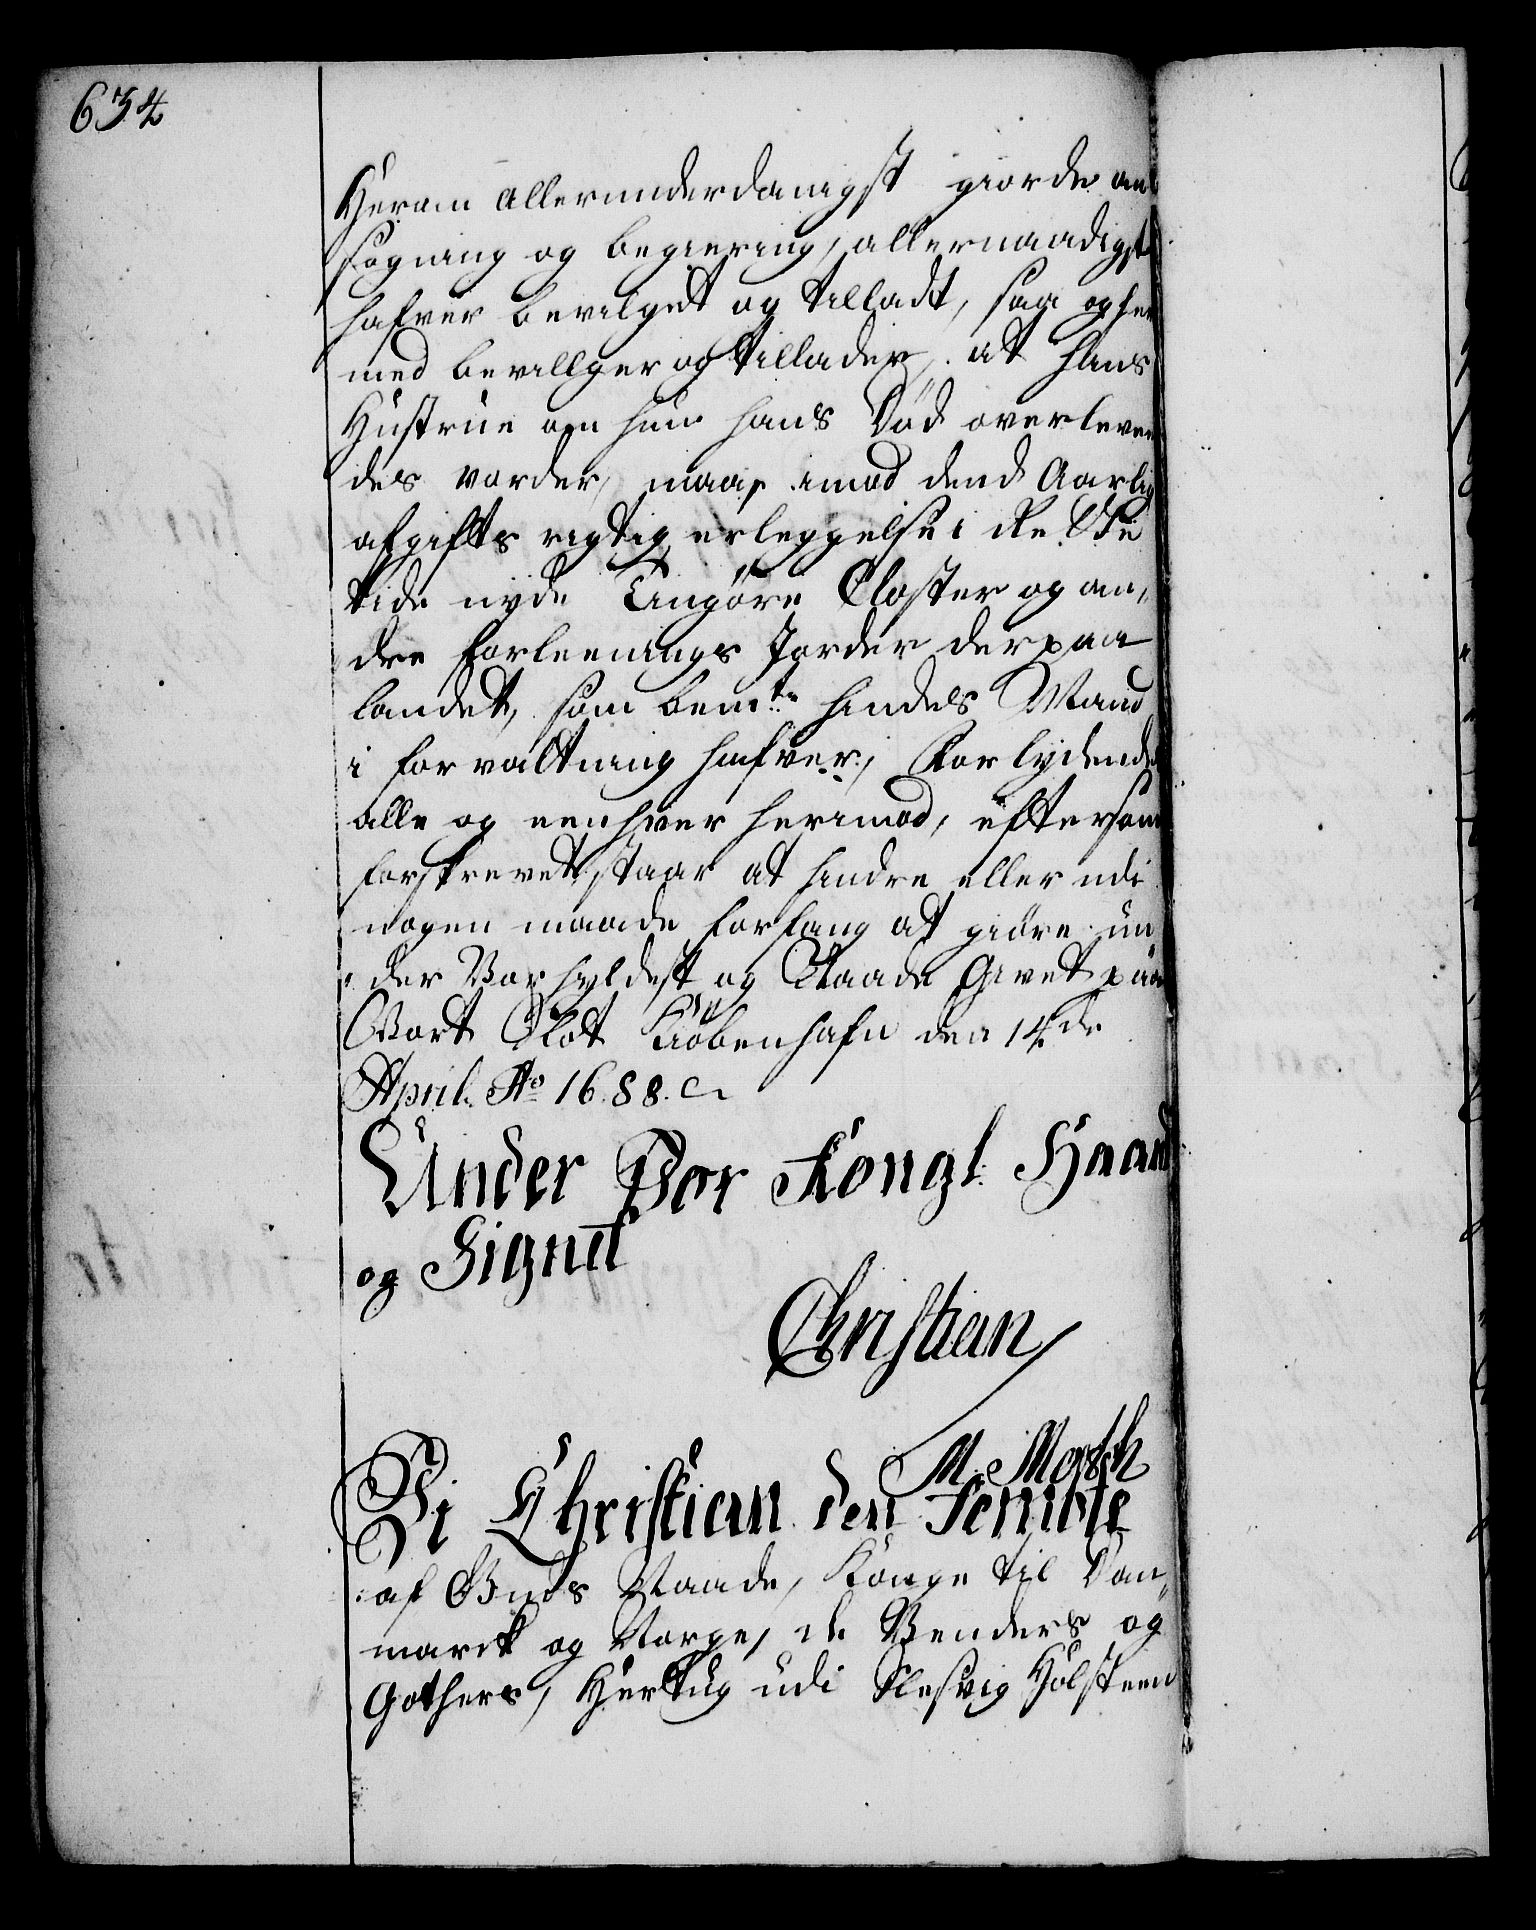 634
Herom allerunderdanigst giorde an
søgning og begiering, allernaadigst
hafver bevilget og tilladt, saa og her
med bevillger og tillader, at hans
Hustrue om hun hans Død overleven
des vorder, maa, imod dend Aarlig
afgifts rigtig erleggelse i rette
tide nyde Tingöre Closter og an„
dre forleenings Jorder der paa
landet, som bemte hendes Mand
i forvaltning hafver, Forbydende
alle og eenhver herimod, eftersom
forskrevet staar at hindre eller udi
nogen maade forfang at giöre un
der Vor hyldest og Naade Givet paa
Vort Slot Kiöbenhafn den 14de
April Ao 1688.
Under Vor Kongl. Haand
og Signet
Christian
M. Moth
Vi Christian den Femte
af Guds Naade, Konge til Dan„
marck og Norge, de Venders og
Gothers, Hertug udi Slesvig Holsteen